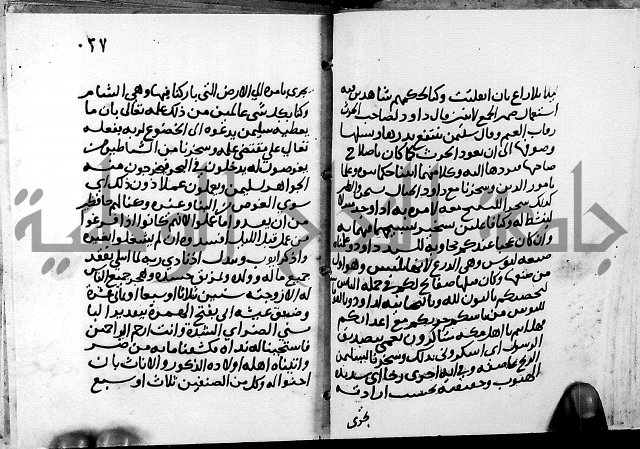 ليلا بلا راع بان انفلتت وكنا لحكمهم شاهدين فيه
استعمال ضمير الجمع لاثنين قال داود لصاحب الحرث
رقاب الغنم وقال سليمن ينتفع بدرها ونسلها
وصوفها الى ان يعود الحرث كما كان باصلاح
صاحبها فيردها اليه وكلا منهما اتينا حكما وعلما
بامور الدين وسخرنا مع داود الجبال يسبحن والطير
كذلك سخرا للتسبيح معه لامره به اذا وجد فترة
لينشط له وكنا فاعلين تسخير تسبيحهما معه
وان كان عجبا عندكم مجاوبة للسيد داود وعلمناه
صنعة لبوس وهي الدرع لانها تلبس وهو اول
من صنعها وكان قبلها صفائح لكم في جملة الناس
لنحصنكم بالنون لله وبالتحتانية لداود وبالفوقانية
للبوس من باسكم حربكم مع اعدائكم
فهل انتم يا اهل مكة شاكرون نعمي بتصديق
الرسول اي اشكروني بذلك وسخرنا لسليمن
الريح عاصفة وفي اية اخرى رخاء اي شديدة
الهبوب وخفيفته بحسب ارادته
تجري
٠٢٧
تجري بامره الى الارض التي باركنا فيها وهي الشام
وكنا بكل شي عالمين من ذلك علمه تعالى بان ما
يعطيه سليمن يدعوه الى الخضوع لربه ففعله
تعالى على مقتضى علمه وسخرنا من الشياطين من
يغوصون له يدخلون في البحر فيخرجون منه
الجواهر لسليمن ويعملون عملا دون ذلك اي
سوى الغوص من البناء وغيره وكنا لهم حافظين
من ان يفسدوا ما عملوا لانهم كانوا اذا فرغوا
من عمل قبل الليل افسدوه ان لم يشتغلوا بغيره
واذكر ايوب ويبدل منه اذ نادى ربه لما ابتلي بفقد
جميع ماله وولده وتمزيق جسده وهجر جميع الناس
له الا زوجته سنين ثلاثا او سبعا او ثماني عشرة
وضيق عيشه اني بفتح الهمزة بتقدير الباء
مسني الضر اي الشدة وانت ارحم الراحمين
فاستجبنا له نداءه فكشفنا ما به من ضر
واتيناه اهله اولاده الذكور والاناث بان
احيوا له وكل من الصنفين ثلاث او سبع
جامعة النجاح الوطنية